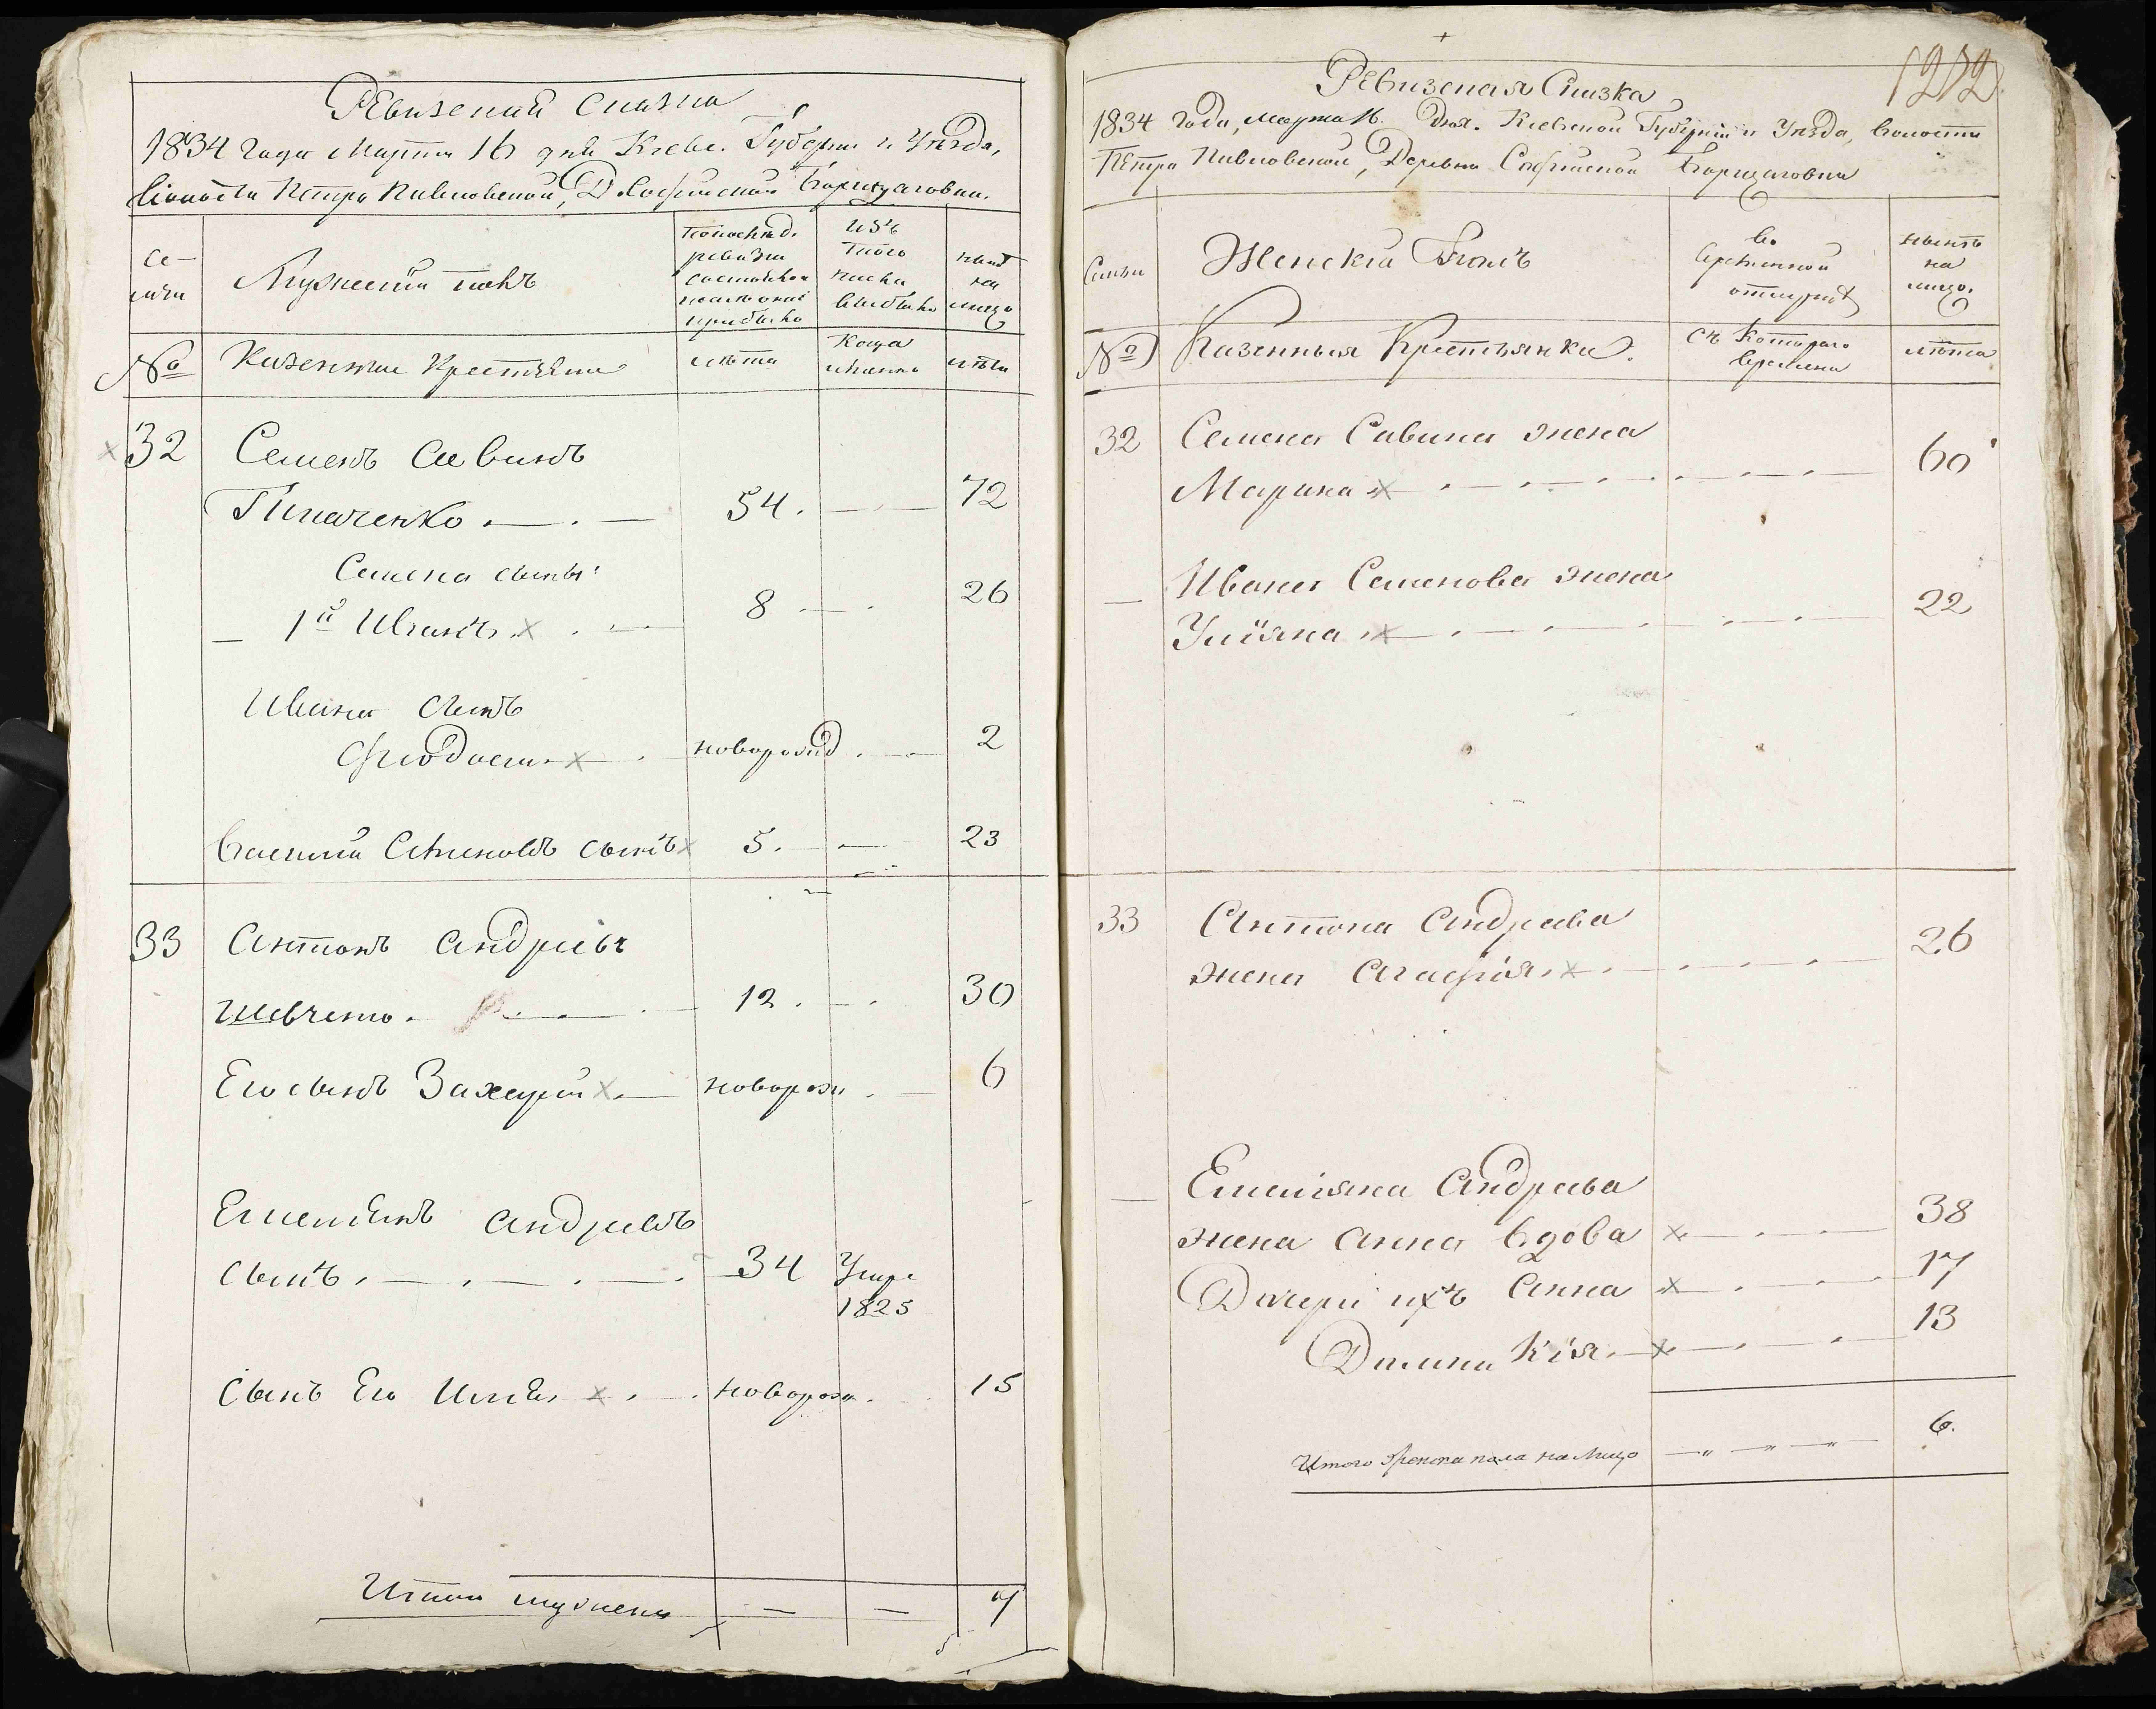 Ревизская сказка
1834 года Марта 16 дня Киевс. Губернии и Уезда,
Волости Петро Павловской, Д. Софииской Борщаговки.
Се-
мьи
Мужеский полъ
По последн.
ревизии
состояло
и после оной
прибыло
Изъ
того
числа
выбыло
ныне
на
лицо
№
Казенные Крестьяне
лета
Когда
именно
лета
32 Семенъ Савинъ
Ткаченко 54. 72
Семена сыны
1й Иванъ 8 26
Ивана сынъ
Феодосий новорожд 2
Василий Семеновъ сынъ 5. 23
33 Антонъ Андреевъ
Шевченко 12. 30
Его сынъ Захарий новорож 6
Емельянъ Андреевъ
сынъ 34 Умре
1825
Сынъ Его Илья новорож. 15
Итого мужеска — — 7
1212
Ревизская Сказка
1834 года, Марта 16. дня. Киевской Губернии и Уезда, волости
Петро Павловской, Деревни Софииской Борщаговки
Семьи
Женский Полъ
Во
временной
отлучке
ныне
на
лицо.
№
Казенныя Крестьянки.
Съ Котораго
времени
лета
32 Семена Савина жена
Марина 60
— Ивана Семенова жена
Улїяна 22
33 Антона Андреева
жена Агафїя 26
— Емелїяна Андреева
жена Анна вдова 38
Дочери ихъ Анна 17
Домникїя 13
Итого женска пола на Лицо 6.